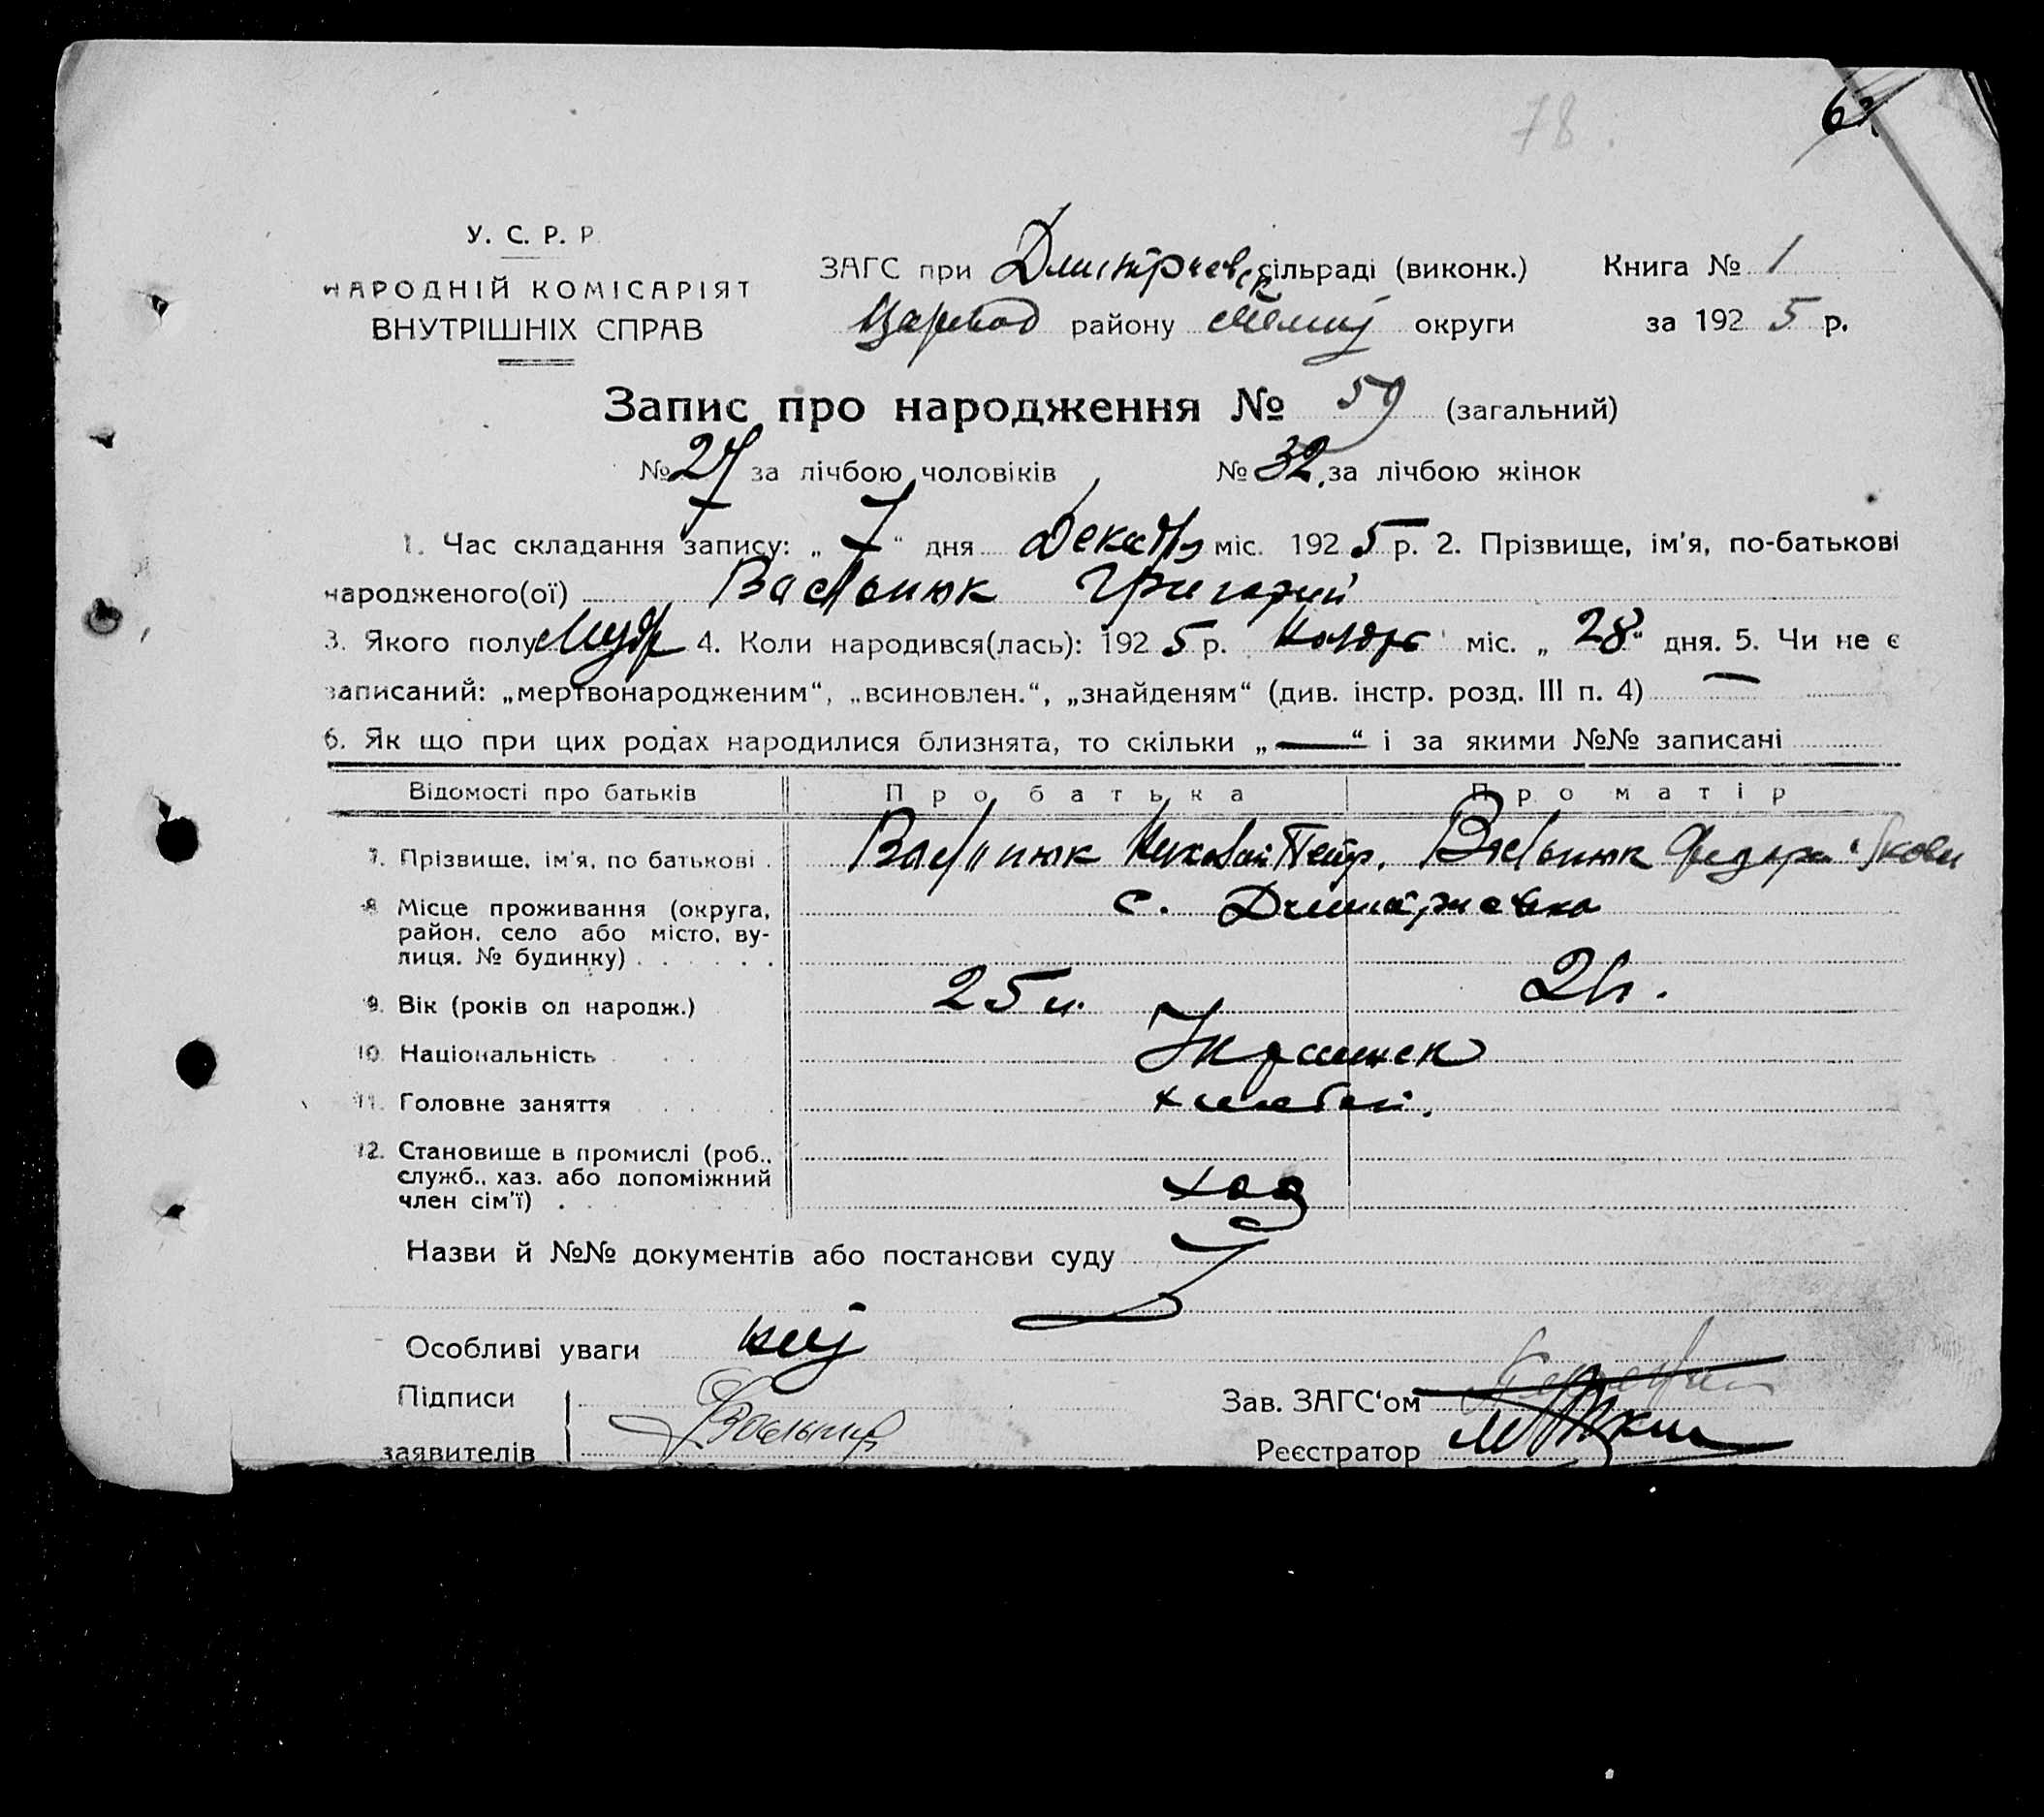 78.
У. С. Р. Р
НАРОДНІЙ КОМІСАРІЯТ
ВНУТРІШНІХ СПРАВ
ЗАГС при Дмитриевск сільраді (виконк.) Книга № 1
району округи за 192 5 р.
Запис про народження № 59 (загальний)
№ 27 за лічбою чоловіків № 32 за лічбою жінок
1. Час складання запису: „ 7 “ дня Декабр міс. 192 5 р. 2. Прізвище, ім'я, по-батькові
народженого(ої) Васильнюк Григорий
3. Якого полу Муж 4. Коли народився(лась): 192 5 р. Ноябрь міс. „ 28 “ дня. 5. Чи не є
записаний: „мертвонародженим“, „всиновлен.“, „знайденям“ (див. інстр. розд. III п. 4) —
6. Як що при цих родах народилися близнята, то скільки „ — “ і за якими №№ записані
Відомості про батьків Про батька Про матір
7. Прізвище, ім'я, по батькові . Васильнюк Николай Петр. Васильнюк Федора Якови
8 Місце проживання (округа,
район, село або місто, ву-
лиця. № будинку) . . . . . .
с. Дмитриевка
9. Вік (років од народж.) 25 л. 21
10 Національність Украинск
11. Головне заняття хлебоп.
12. Становище в промислі (роб.,
служб., хаз. або допоміжний
член сім'ї) . хоз
Назви й №№ документів або постанови суду
Особливі уваги
Підписи
заявителів
Зав. ЗАГС'ом
Реєстратор